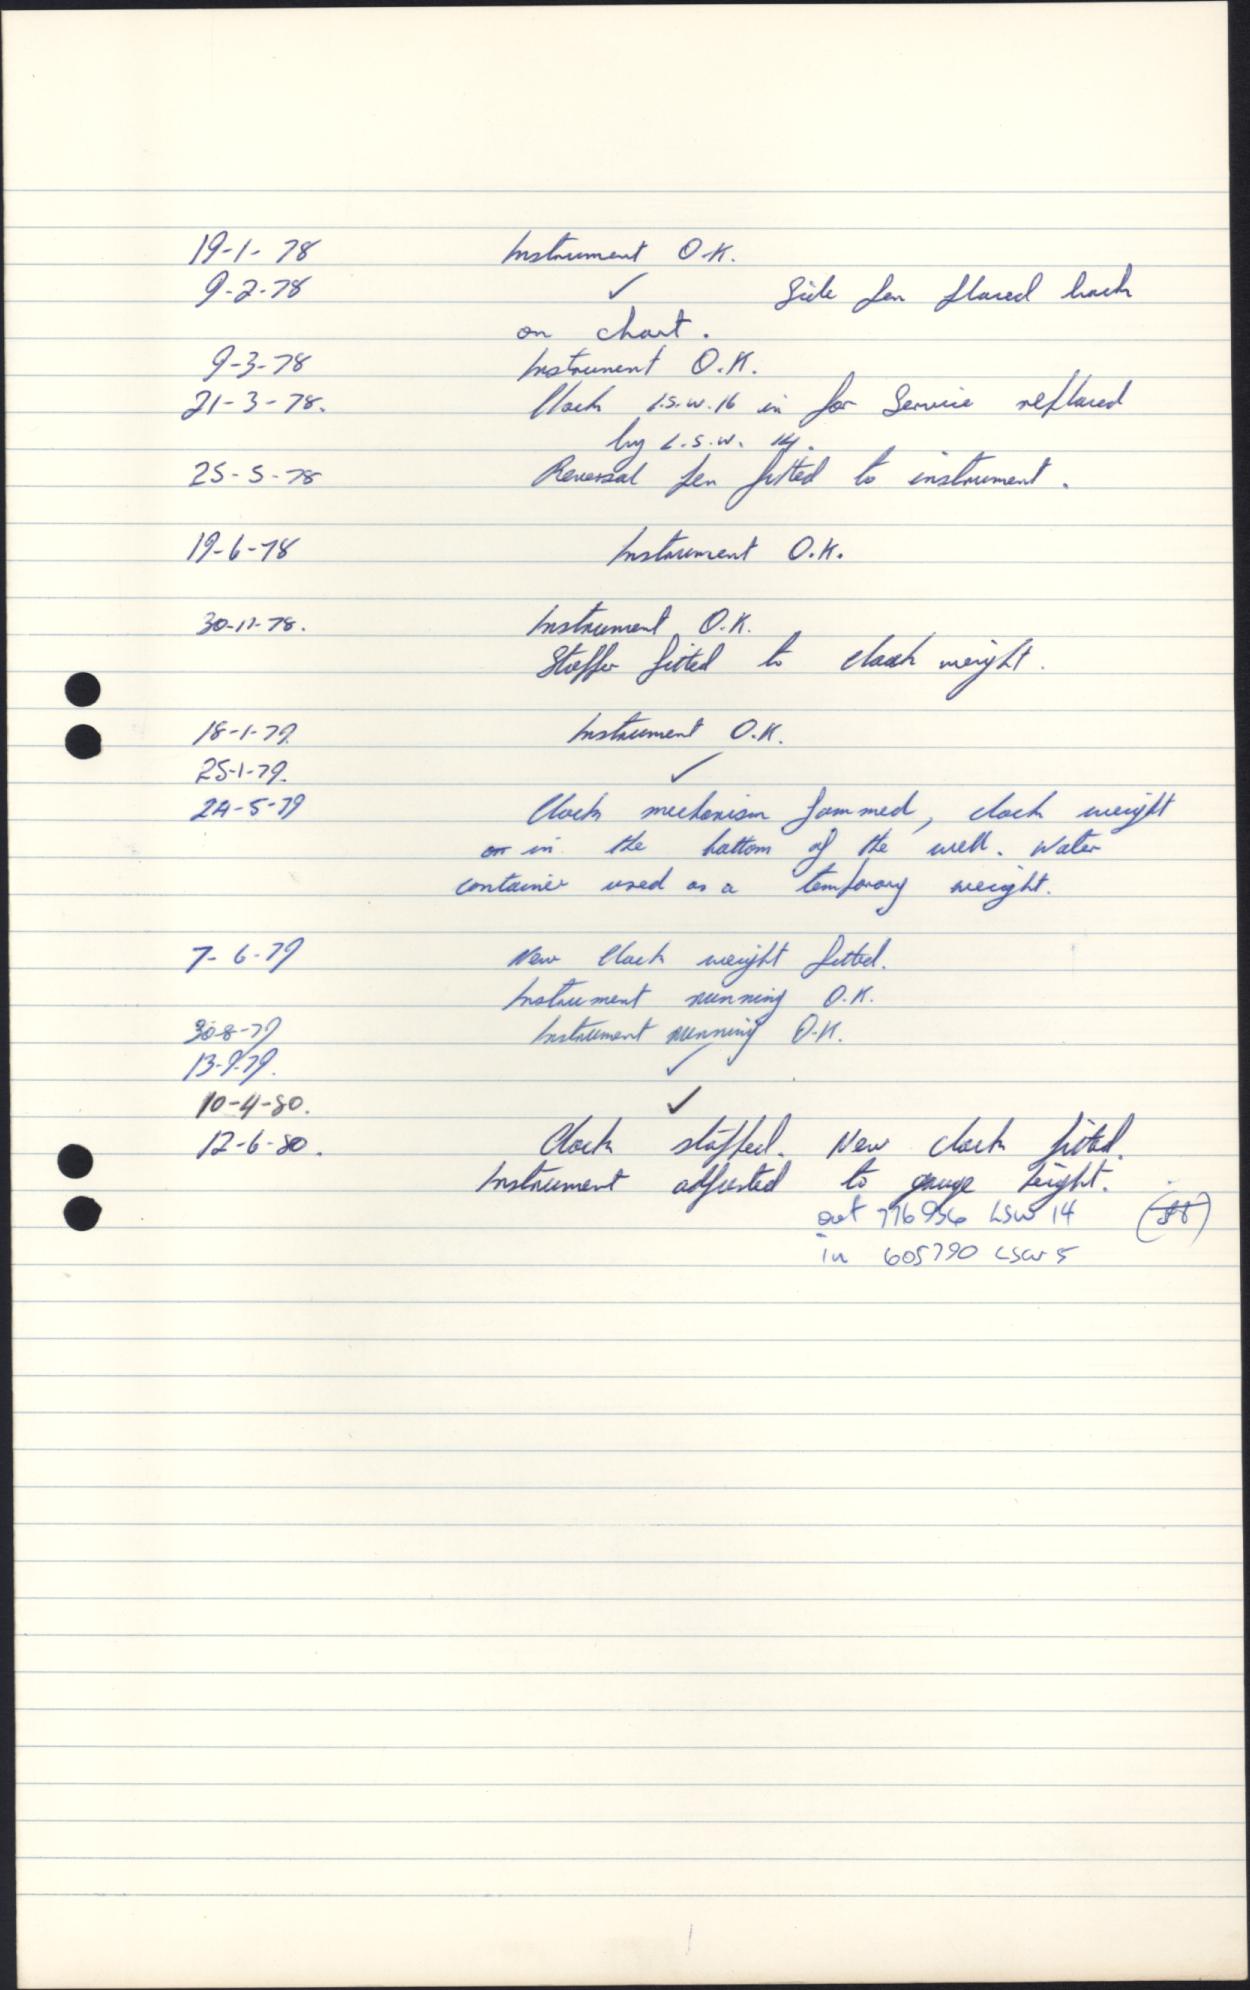 19-1-78 Instrument O.K.
9-2-78 ✓ Side pen placed back
on chart.
9-3-78 Instrument O.K.
21-3-78. Clock L.S.W. 16 in for Service replaced
by L.S.W. 14.
25-5-78 Reversal pen fitted to instrument.
19-6-78 Instrument O.K.
30-11-78. Instrument O.K.
Stopper fitted to clock weight.
18-1-79 Instrument O.K.
25-1-79. ✓
24-5-79 Clock mechanism jammed, clock weight
in the bottom of the well. Water
container used as a temporary weight.
7-6-79 New Clock weight fitted.
Instrument running O.K.
30-8-79 Instrument running O.K.
13-9-79. ✓
10-4-80. ✓
12-6-80. Clock stopped. New clock fitted.
Instrument adjusted to gauge height.
out 776956 LSW 14
in 605790 LSW 5